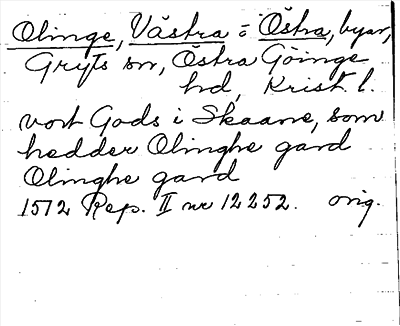 Olinge, Västra o Östra, byar,
Gryts sn, Östra Göinge
hd, Krist. l.
vort Gods i Skaane, som
hedder Olinghe gard
Olinghe gard
1512 Rep. II nr 12252. orig.